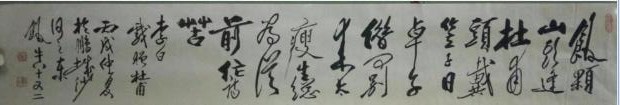 飯顆
山頭逢
杜甫
頭戴
笠子日
卓午
借問別
来太
瘦生總
為從
前作詩
苦
李白
戲贈杜甫
丙戌仲夏
於